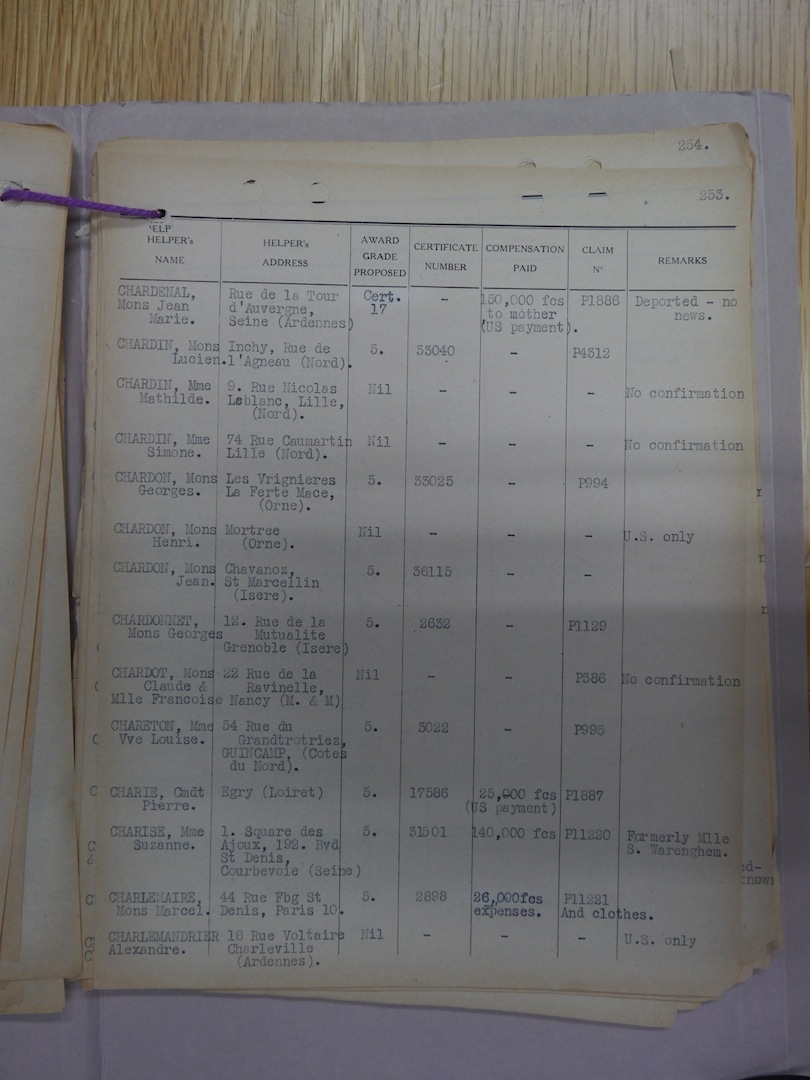 254.
253.
HELPER's NAME
HELPER's ADDRESS
AWARD GRADE PROPOSED
CERTIFICATE NUMBER
COMPENSATION PAID
CLAIM N°
REMARKS
CHARDENAL, Rue de la Tour Cert. - 150,000 fcs P1886 Deported - no
Mons Jean d'Auvergne, 17 to mother news.
Marie. Seine (Ardennes) (US payment).
CHARDIN, Mons Inchy, Rue de 5. 33040 - P4312
Lucien. l'Agneau (Nord).
CHARDIN, Mme 9. Rue Nicolas Nil - - - No confirmation
Mathilde. Leblanc, Lille,
(Nord).
CHARDIN, Mme 74 Rue Caumartin Nil - - - No confirmation
Simone. Lille (Nord).
CHARDON, Mons Les Vrignieres 5. 33025 - P994
Georges. La Ferte Mace,
(Orne).
CHARDON, Mons Mortree Nil - - - U.S. only
Henri. (Orne).
CHARDON, Mons Chavanoz, 5. 36115 - -
Jean. St Marcellin
(Isere).
CHARDONNET, 12. Rue de la 5. 2632 - P1129
Mons Georges Mutualite
Grenoble (Isere)
CHARDOT, Mons 22 Rue de la Nil - - P386 No confirmation
Claude & Ravinelle,
Mlle Francoise Nancy (M. & M)
CHARETON, Mme 54 Rue du 5. 3022 - P995
Vve Louise. Grandtrotriez,
GUINCAMP, (Cotes
du Nord).
CHARIE, Cmdt Egry (Loiret) 5. 17586 25,000 fcs P1887
Pierre. (US payment)
CHARISE, Mme 1. Square des 5. 31501 140,000 fcs P11220 Formerly Mlle
Suzanne. Ajoux, 192. Bvd S. Warenghem.
St Denis,
Courbevoie (Seine)
CHARLEMAIRE, 44 Rue Fbg St 5. 2898 26,000fcs P11221
Mons Marcel. Denis, Paris 10. expenses. And clothes.
CHARLEMANDRIER 16 Rue Voltaire Nil - - - U.S. only
Alexandre. Charleville
(Ardennes).